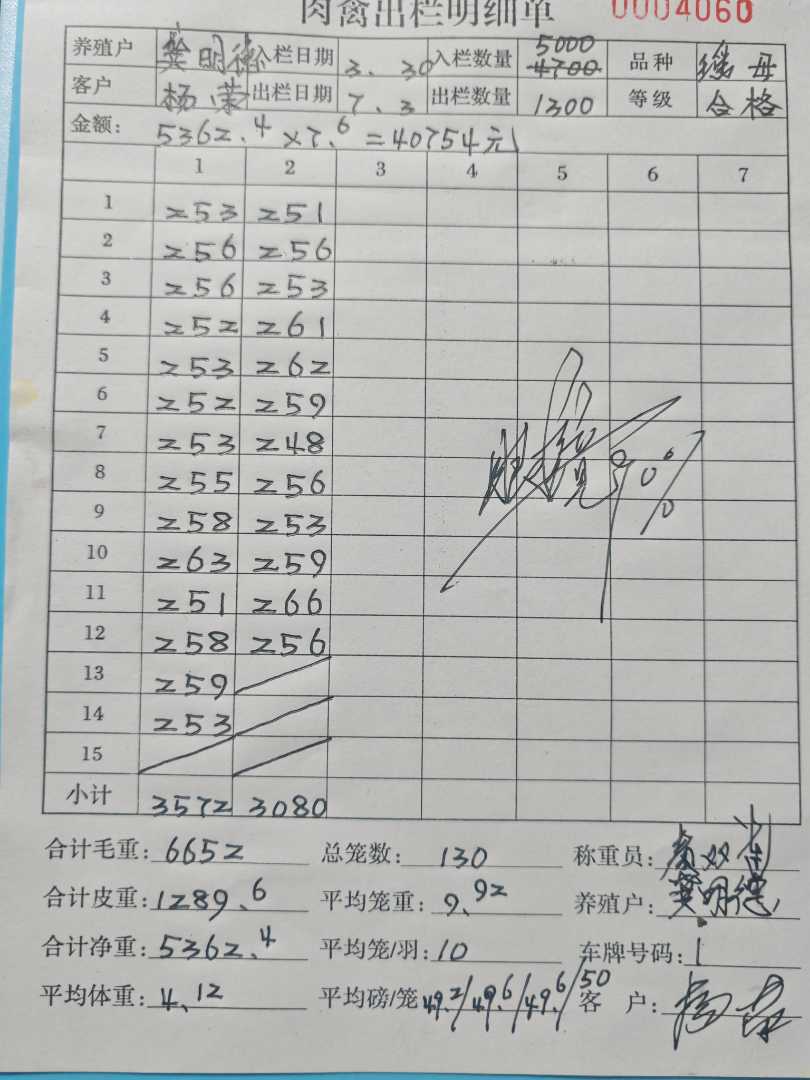 肉禽出栏明细单 0004060
养殖户 龚明德 入栏日期 3.30 入栏数量 5000 4700 品种 瑶母
客户 杨荣 出栏日期 7.3 出栏数量 1300 等级 合格
金额: 5362.4×7.6=40754元
1 2 3 4 5 6 7
1 253 251
2 256 256
3 256 253
4 252 261
5 253 262
6 252 259
7 253 248
8 255 256
9 258 253
10 263 259
11 251 266
12 258 256
13 259
14 253
15
小计 3572 3080
合计毛重: 6652 总笼数: 130 称重员:
合计皮重: 1289.6 平均笼重: 9.92 养殖户: 龚明德
合计净重: 5362.4 平均笼/羽: 10 车牌号码: 1
平均体重: 4.12 平均磅/笼 49.2/49.6/49.6/50 客 户: